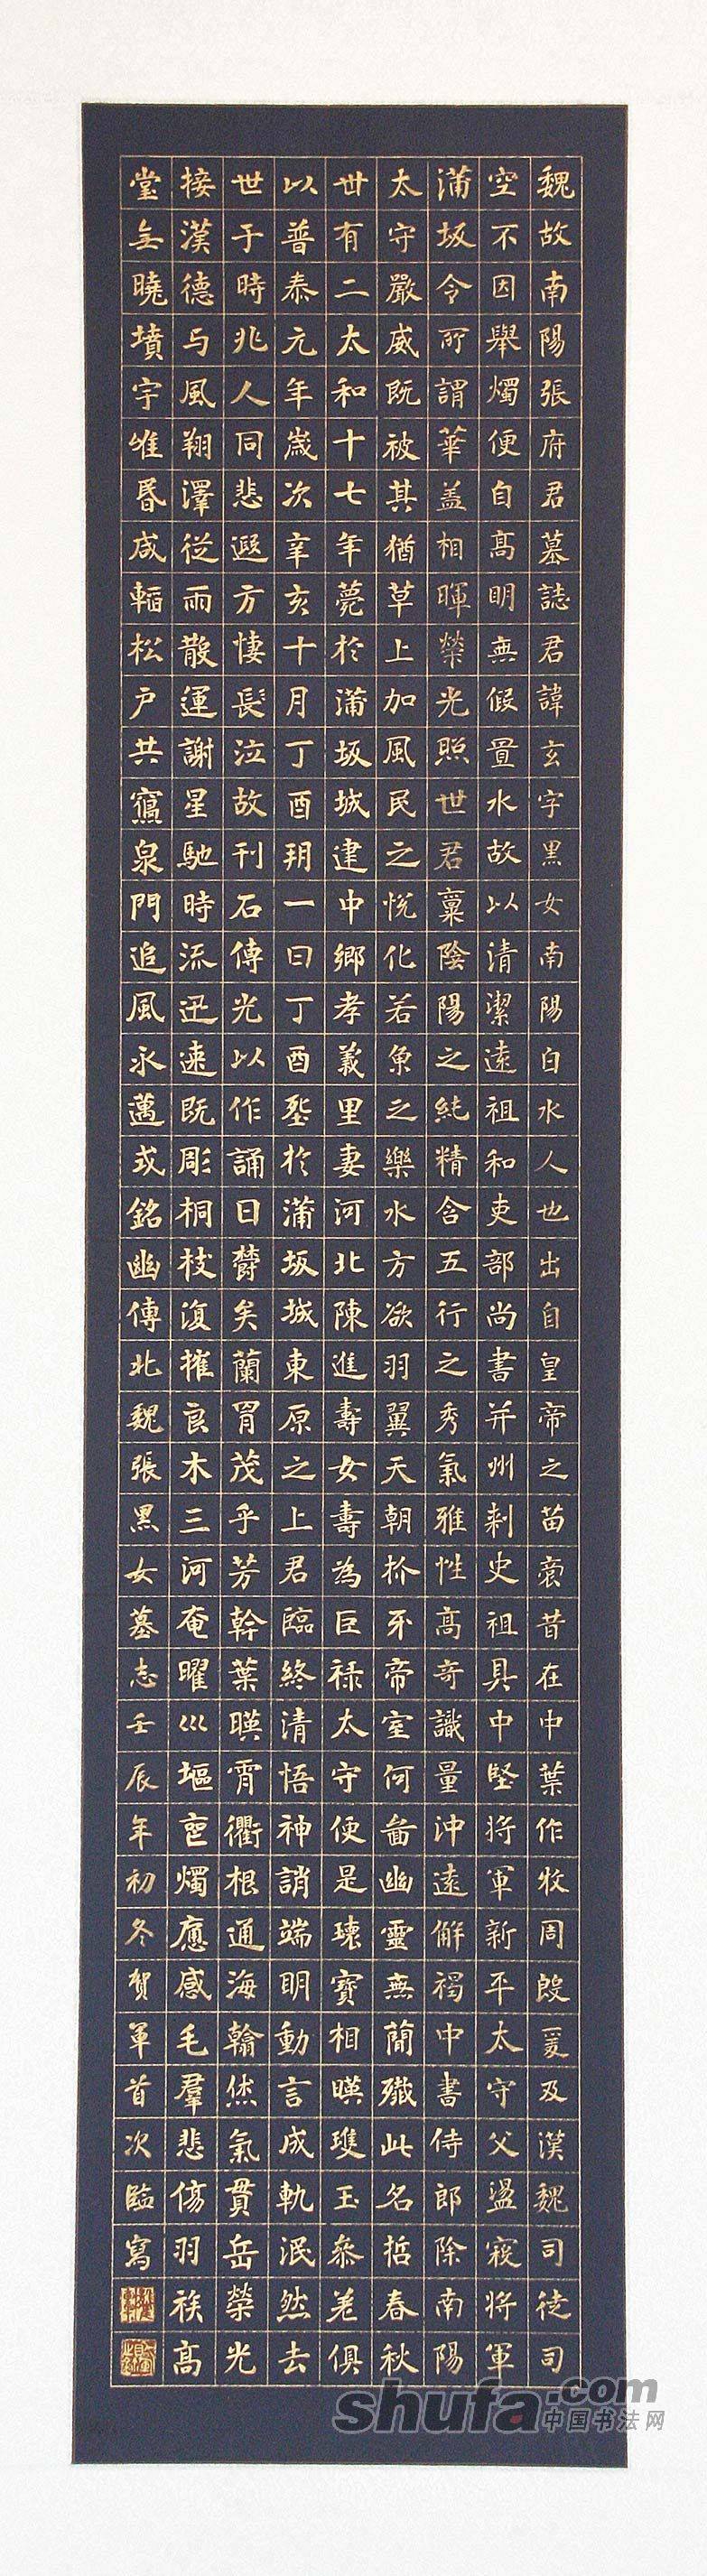 魏故南陽張府君墓誌君諱玄字黑女南陽白水人也出自皇帝之苗裔昔在中葉作牧周殷爰及漢魏司徒司
空不因舉燭便自高明無假置水故以清潔遠祖和吏部尚書并州刺史祖具中堅將軍新平太守父盪寇將軍
蒲坂令所謂華蓋相暉榮光照世君稟陰陽之純精含五行之秀氣雅性高奇識量沖遠解褐中書侍郎除南陽
太守嚴威既被其猶草上加風民之悅化若魚之樂水方欲羽翼天朝扵不帝室何啚幽靈無簡殲此名哲春秋
丗有二太和十七年薨於蒲坂城建中鄉孝義里妻河北陳進壽女壽為巨祿太守便是瓌寶相暎瓊玉參差俱
以普泰元年歲次辛亥十月丁酉朔一日丁酉塟於蒲坂城東原之上君臨終清悟神誚端明動言成軌泯然去
世于時兆人同悲遐方悽長泣故刊石傳光以作誦曰欝矣蘭胃茂乎芳幹葉暎霄衢根通海翰烋氣貫岳榮光
接漢德与風翔澤從雨散運謝星馳時流迅速既彫桐枝復摧良木三河奄曜巛塸啚燭應感毛羣悲傷羽族高
堂无曉墳宇唯昏咸韜松戶共寫泉門追風永邁式銘幽傳北魏張黑女墓志壬辰年初冬賀軍首次臨寫
shufa.com
中国书法网